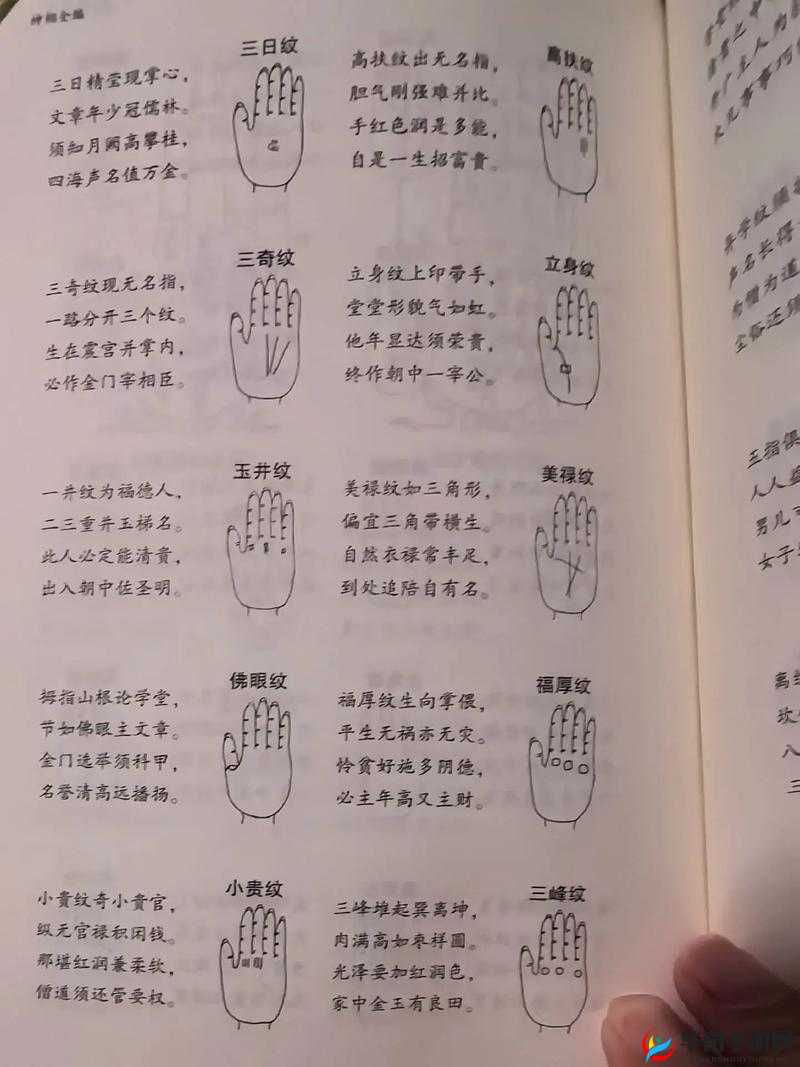 神相全编
三日纹
三日精莹现掌心，
文章年少冠儒林。
须知月阙高攀桂，
四海声名值万金。
高扶纹
高扶纹出无名指，
胆气刚强难并比。
手红色润是多能，
自是一生招富贵。
三奇纹
三奇纹现无名指，
一路分开三个纹。
生在震宫并掌内，
必作金门宰相臣。
立身纹
立身纹上印带手，
堂堂形貌气如虹。
他年显达须荣贵，
终作朝中一宰公。
玉井纹
一井纹为福德人，
二三重井玉梯名。
此人必定能清贵，
出入朝中佐圣明。
美禄纹
美禄纹如三角形，
偏宜三角带横生。
自然衣禄常丰足，
到处追陪自有名。
佛眼纹
拇指山根论学堂，
节如佛眼主文章。
金门选举须科甲，
名誉清高远播扬。
福厚纹
福厚纹生向掌偎，
平生无祸亦无灾。
怜贫好施多阴德，
必主年高又主财。
小贵纹
小贵纹奇小贵官，
纵无官禄积闲钱。
那堪红润兼柔软，
僧道须还管要权。
三峰纹
三峰堆起巽离坤，
肉满高如枣样圆。
光泽要加红润色，
家中金玉有良田。
异学纹
声名长得
为僧为道
三指俱
人人
男儿
女子
离
坎
八
三